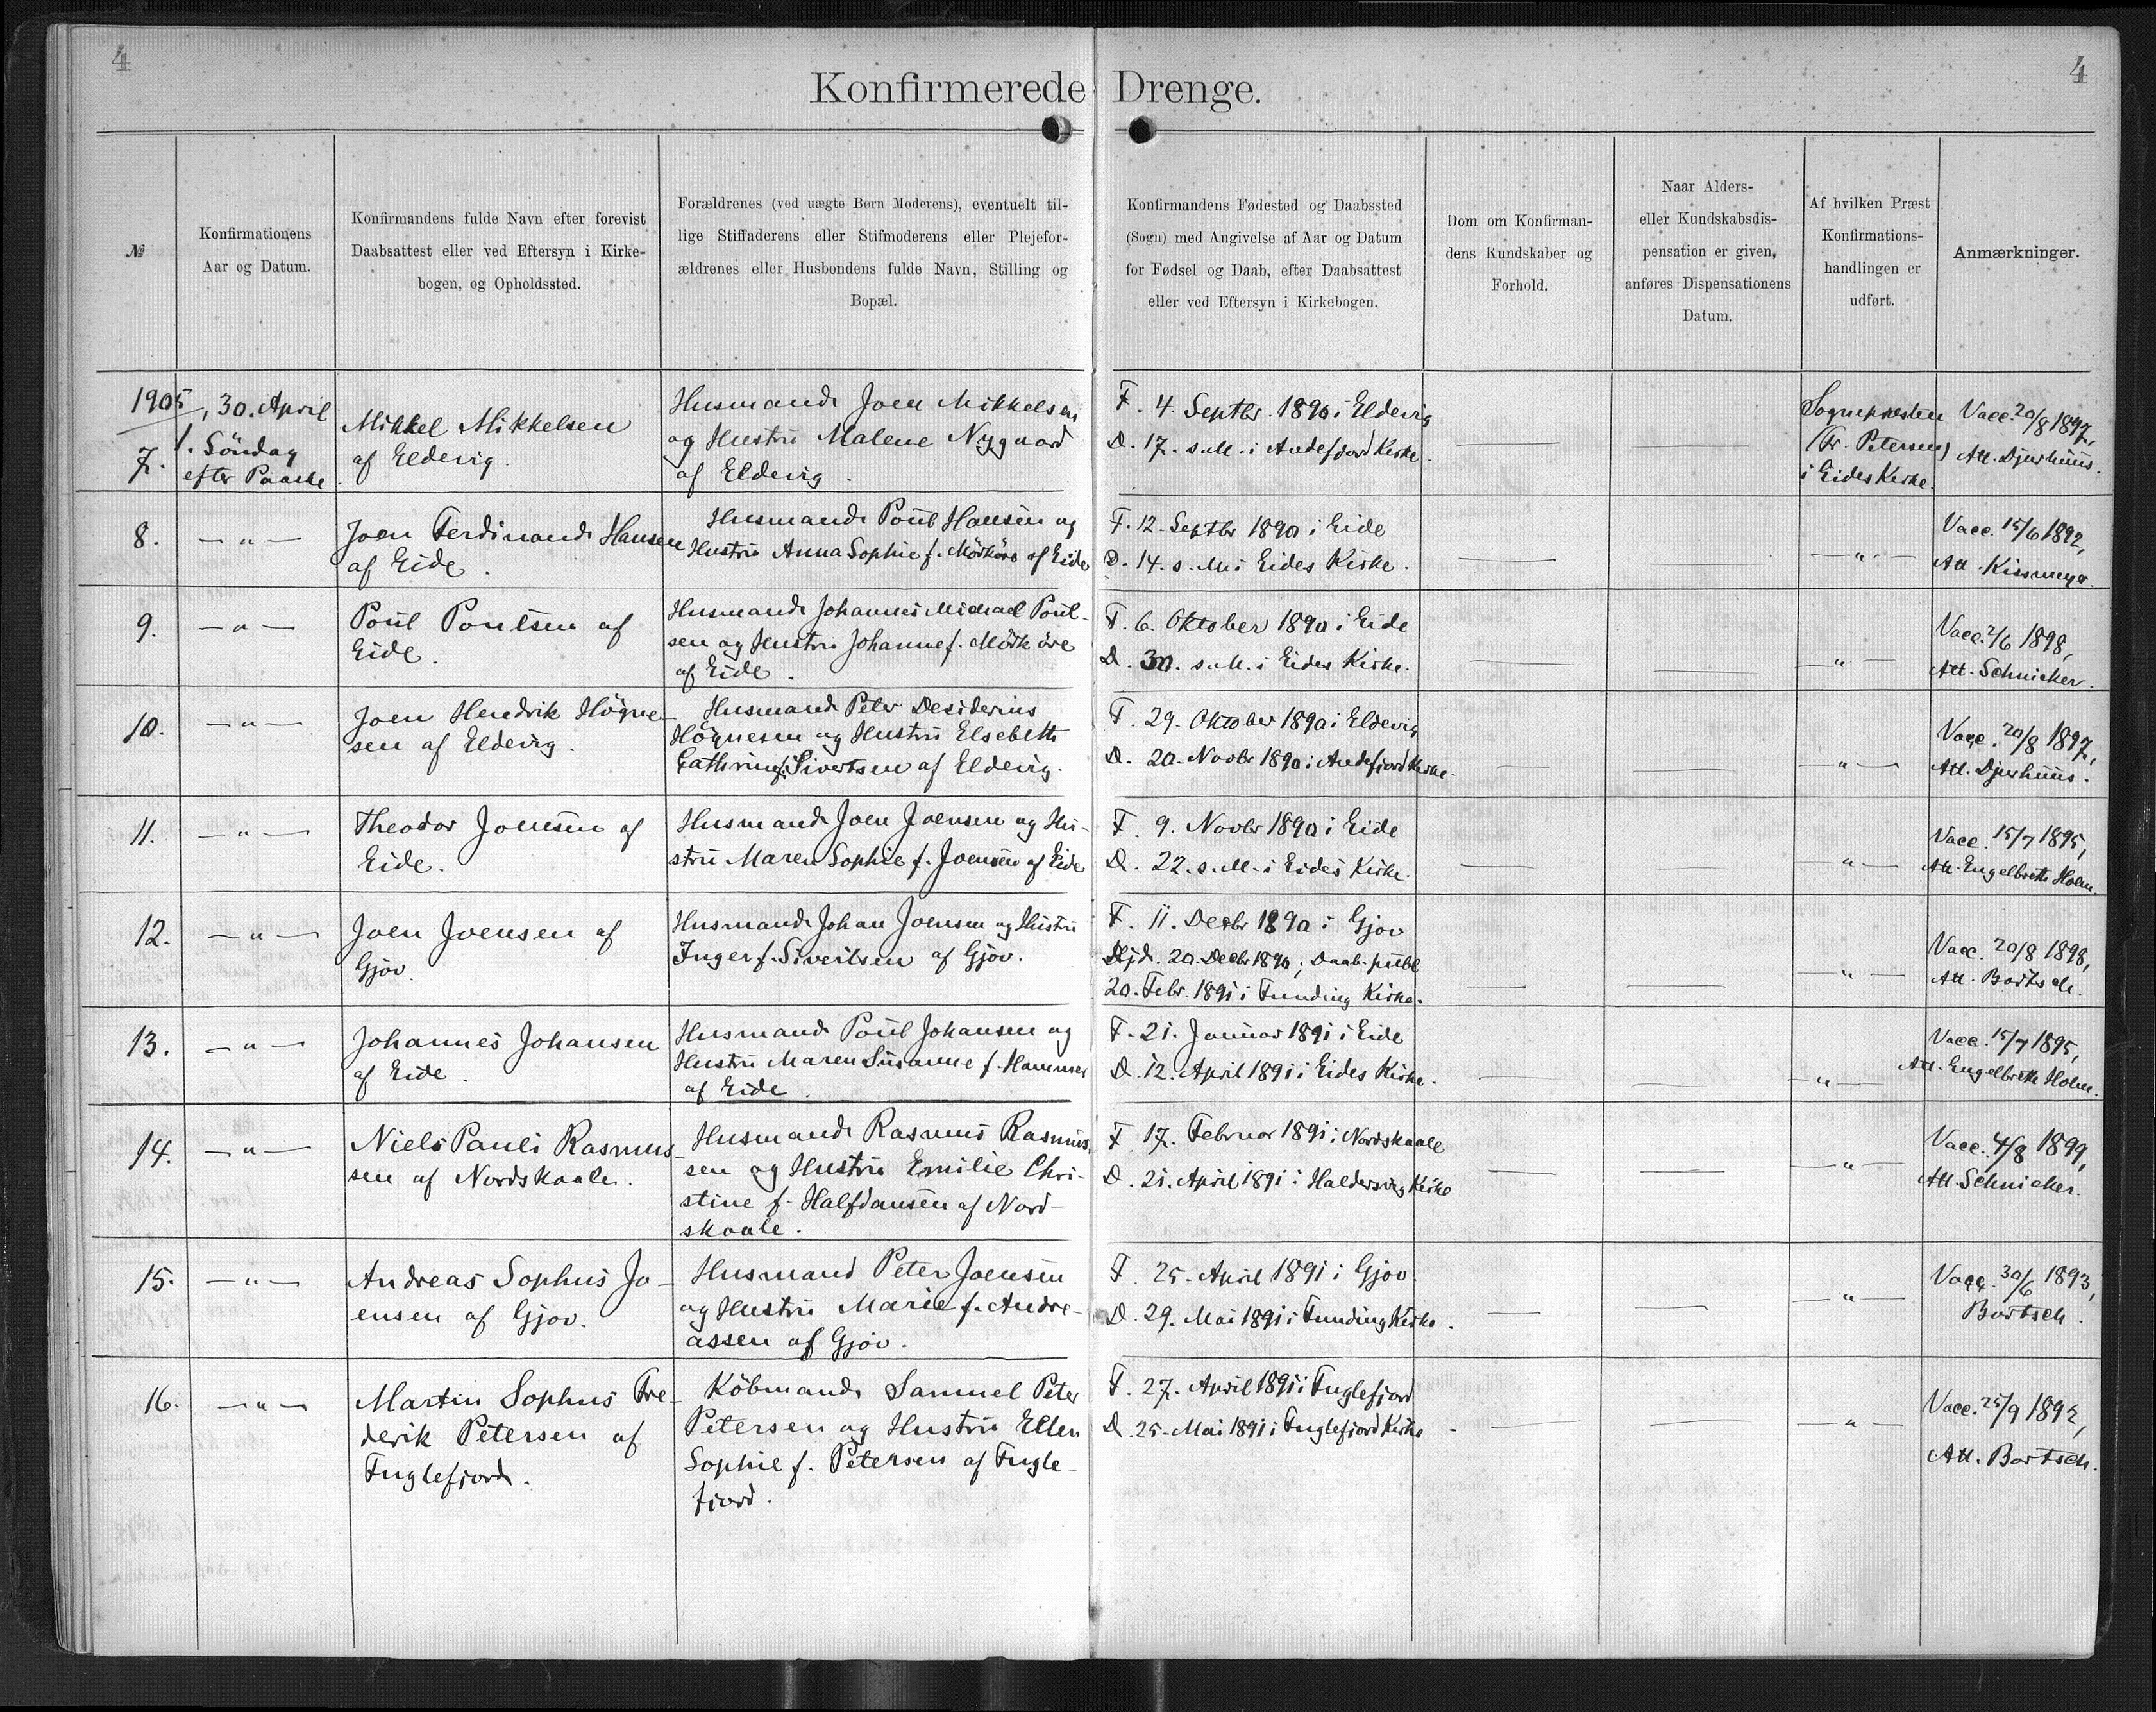 4
4
Konfirmerede Drenge.
№
Konfirmationens
Aar og Datum.
Konfirmandens fulde Navn efter forevist
Daabsattest eller ved Eftersyn i Kirke-
bogen, og Opholdssted.
Forældrenes (ved uægte Børn Moderens), eventuelt til-
lige Stiffaderens eller Stifmoderens eller Plejefor-
ældrenes eller Husbondens fulde Navn, Stilling og
Bopæl.
Konfirmandens Fødested og Daabssted
(Sogn) med Angivelse af Aar og Datum
for Fødsel og Daab, efter Daabsattest
eller ved Eftersyn i Kirkebogen.
Dom om Konfirman-
dens Kundskaber og
Forhold.
Naar Alders-
eller Kundskabsdis-
pensation er given,
anføres Dispensationens
Datum.
Af hvilken Præst
Konfirmations-
handlingen er
udført.
Anmærkninger.
1905, 30. April
7.
1. Söndag
efter Paaske
Mikkel Mikkelsen
af Eldevig.
Husmand Joen Mikkelsen
og Hustru Malene Nygaard
af Eldevig.
F. 4. Septbr. 1890 i Eldevig
D. 17. s. M. i Andefjord Kirke.
—
—
Sognepræsten
(Fr. Petersen)
i Eides Kirke.
Vacc. 20/8 1897,
Att. Djurhuus.
8.
— " —
Joen Ferdinand Hansen
af Eide.
Husmand Poul Hansen og
Hustru Anna Sophie f. Mörköre af Eide
F. 12. Septbr 1890 i Eide
D. 14. s. M. i Eides Kirke.
—
—
— " —
Vacc. 15/6 1892,
Att. Kissmeyer.
9.
— " —
Poul Poulsen af
Eide.
Husmand Johannes Michael Poul-
sen og Hustru Johanne f. Mörköre
af Eide.
F. 6. Oktober 1890 i Eide
D. 30. s. M. i Eides Kirke.
—
—
— " —
Vacc. 2/6 1898,
Att. Schnicker.
10.
— " —
Joen Hendrik Högne-
sen af Eldevig.
Husmand Peter Desiderius
Högnesen og Hustru Elsebeth
Cathrine f. Sivertsen af Eldevig.
F. 29. Oktober 1890 i Eldevig
D. 20. Novbr 1890 i Andefjord Kirke.
—
—
— " —
Vacc. 20/8 1897,
Att. Djurhuus.
11.
— " —
Theodor Joensen af
Eide.
Husmand Joen Joensen og Hu-
stru Maren Sophie f. Joensen af Eide
F. 9. Novbr 1890 i Eide
D. 22. s. M. i Eides Kirke.
—
—
— " —
Vacc. 15/7 1895,
Att. Engelbreth Holm.
12.
— " —
Joen Joensen af
Gjov.
Husmand Johan Joensen og Hustru
Inger f. Sivertsen af Gjov.
F. 11. Decbr 1890 i Gjov
Hjd. 20. Decbr 1890; Daab. publ
20. Febr. 1891 i Funding Kirke.
—
—
— " —
Vacc. 20/8 1898,
Att. Bortsch.
13.
— " —
Johannes Johansen
af Eide.
Husmand Poul Johansen og
Hustru Maren Susanne f. Hammer
af Eide.
F. 21. Januar 1891 i Eide
D. 12. April 1891 i Eides Kirke.
—
—
— " —
Vacc. 15/7 1895,
Att. Engelbreth Holm.
14.
— " —
Niels Pauli Rasmus-
sen af Nordskaale.
Husmand Rasmus Rasmus-
sen og Hustru Emilie Chri-
stine f. Halfdansen af Nord-
skaale.
F. 17. Februar 1891 i Nordskaale
D. 21. April 1891 i Haldersvig Kirke
—
—
— " —
Vacc. 4/8 1899,
Att. Schnicker.
15.
— " —
Andreas Sophus Jo-
ensen af Gjov.
Husmand Peter Joensen
og Hustru Marie f. Andre-
assen af Gjov.
F. 25. April 1891 i Gjov.
D. 29. Mai 1891 i Funding Kirke.
—
—
— " —
Vacc. 30/6 1893,
Bortsch.
16.
— " —
Martin Sophus Fre-
derik Petersen af
Fuglefjord.
Köbmand Samuel Peter
Petersen og Hustru Ellen
Sophie f. Petersen af Fugle-
fjord.
F. 27. April 1891 i Fuglefjord
D. 25. Mai 1891 i Fuglefjord Kirke.
—
—
— " —
Vacc. 25/9 1892,
Att. Bortsch.